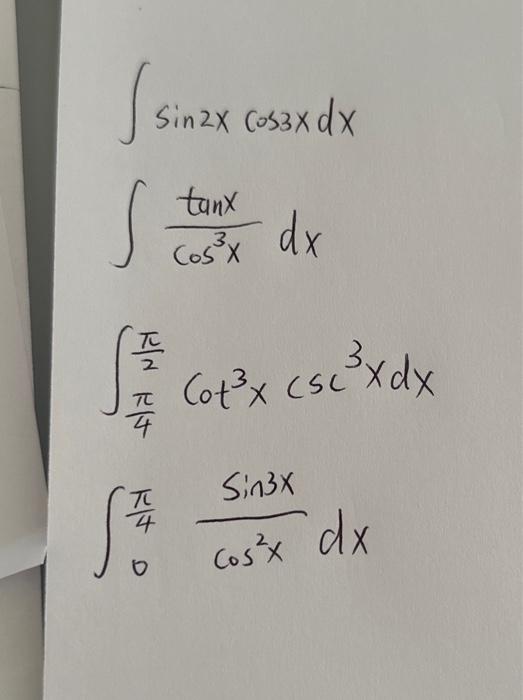 ∫ sin2x cos3x dx
∫ tanx/cos³x dx
∫_{π/4}^{π/2} cot³x csc³x dx
∫_{0}^{π/4} sin3x/cos²x dx